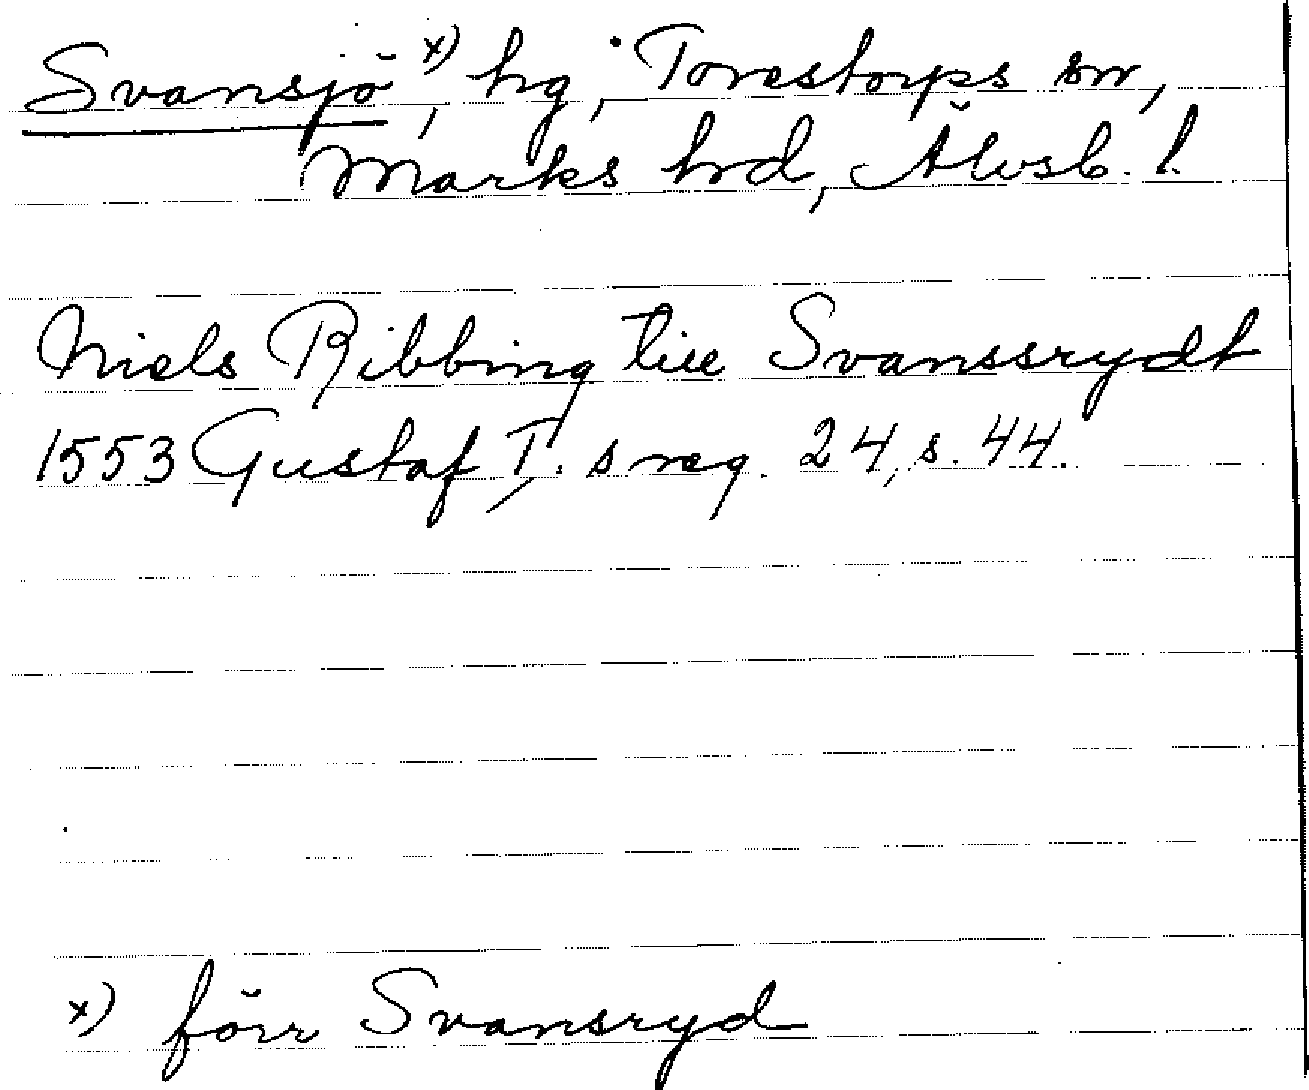 Svansjö x), hg, Torestorps sn,
Marks hrd, Älvsb. l.
Niels Ribbing till Svanssrydt
1553 Gustaf I, s reg. 24, s. 44.
x) förr Svansryd